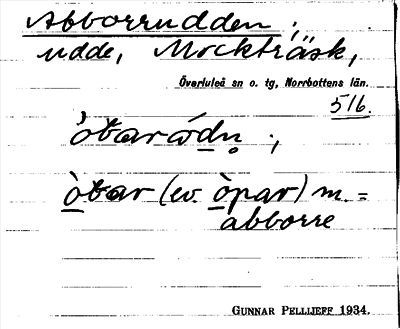 Abborrudden ;
udde, Mockträsk,
Överluleå sn o. tg, Norrbottens län.
516.
ò̀baródn̥ ;
òbar (ev. òpar) m. =
abborre
GUNNAR PELLIJEFF 1934.